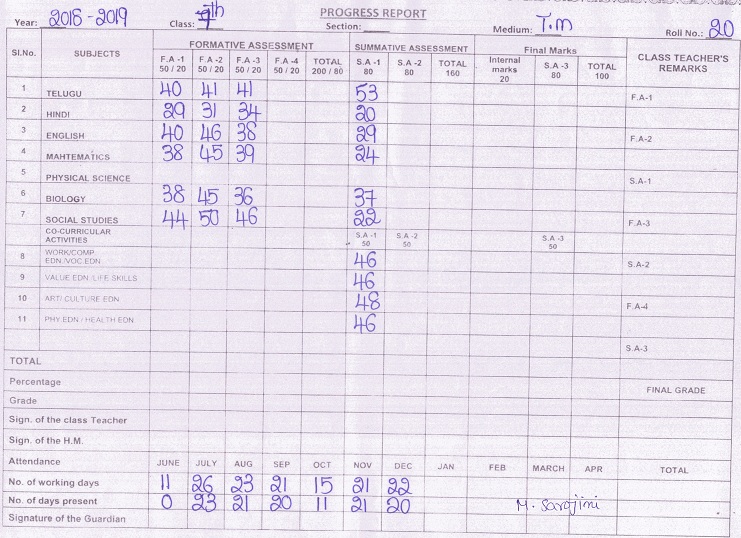 PROGRESS REPORT
Year: 2018-2019 Class: 7th Section: Medium: T.m Roll No.: 20
Sl.No. SUBJECTS FORMATIVE ASSESSMENT SUMMATIVE ASSESSMENT Final Marks CLASS TEACHER'S REMARKS
F.A -1 50 / 20 F.A -2 50 / 20 F.A -3 50 / 20 F.A -4 50 / 20 TOTAL 200 / 80 S.A -1 80 S.A -2 80 TOTAL 160 Internal marks 20 S.A -3 80 TOTAL 100
1 TELUGU 40 41 41 53 F.A-1
2 HINDI 29 31 34 20
3 ENGLISH 40 46 38 29 F.A-2
4 MAHTEMATICS 38 45 39 24
5 PHYSICAL SCIENCE S.A-1
6 BIOLOGY 38 45 36 37
7 SOCIAL STUDIES 44 50 46 22 F.A-3
CO-CURRICULAR ACTIVITIES S.A -1 50 S.A -2 50 S.A -3 50
8 WORK/COMP. EDN /VOC.EDN 46 S.A-2
9 VALUE EDN /LIFE SKILLS 46
10 ART/ CULTURE EDN 48 F.A-4
11 PHY.EDN / HEALTH EDN. 46
S.A-3
TOTAL
Percentage FINAL GRADE
Grade
Sign. of the class Teacher
Sign. of the H.M.
Attendance JUNE JULY AUG SEP OCT NOV DEC JAN FEB MARCH APR TOTAL
No. of working days 11 26 23 21 15 21 22
No. of days present 0 23 21 20 11 21 20 M. Sarojini
Signature of the Guardian